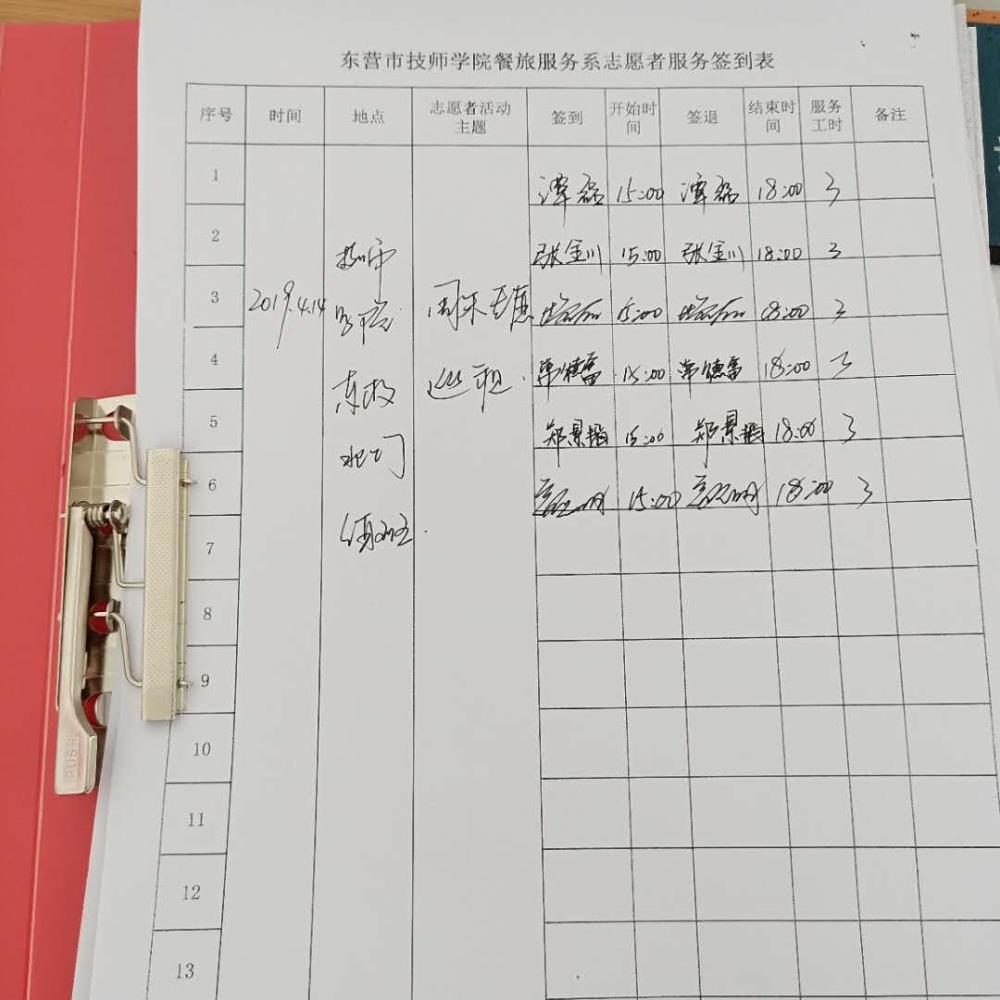 东营市技师学院餐旅服务系志愿者服务签到表
序号 时间 地点 志愿者活动主题 签到 开始时间 签退 结束时间 服务工时 备注
1 谭磊 15:00 谭磊 18:00 3
2 张金川 15:00 张金川 18:00 3
3 2019.4.14 学院 周末 15:00 18:00 3
4 东校 常德富 15:00 常德富 18:00 3
5 郑景 15:00 郑景 18:00 3
6 15:00 18:00 3
7
8
9
10
11
12
13
PUSH